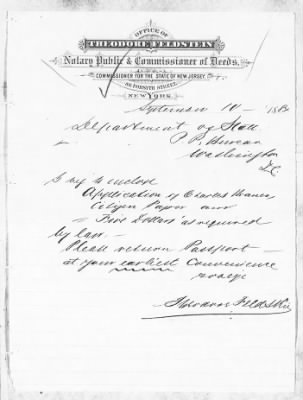 OFFICE OF
THEODORE FELDSTEIN
Notary Public & Commissioner of Deeds.
COMMISSIONER FOR THE STATE OF NEW JERSEY.
FORSYTH STREET,
NEW YORK,
Department of State
P. P. Bureau
Washington
D.C.
I beg to enclose
Application of Charles
Citizen Paper and
Five Dollars as required
by law.
Please return Passport
at your earliest Convenience
Theodore Feldstein